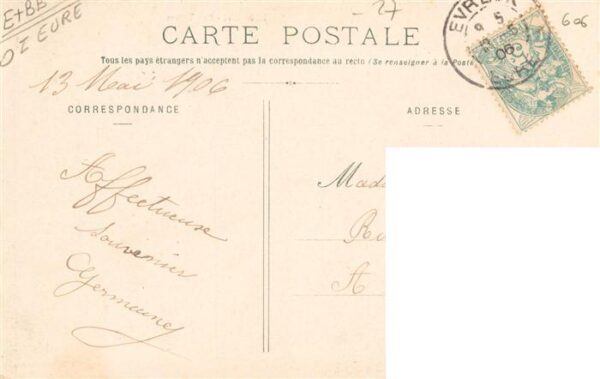 E+BB
OI EURE
27
606
CARTE POSTALE
Tous les pays étrangers n'acceptent pas la correspondance au recto (Se renseigner à la Poste
13 Mai 1906
CORRESPONDANCE
ADRESSE
EVREUX
9 5
06
EURE
Affectueux
souvenirs
Germaine
Mada
Ru
A